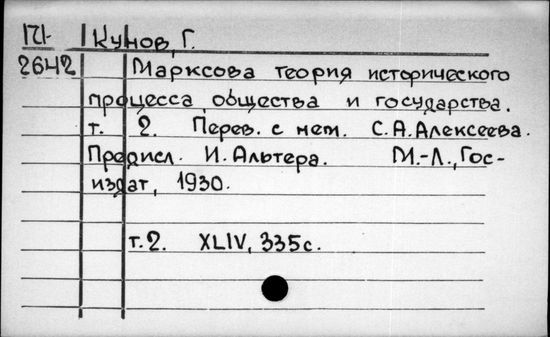 П1- Кунов, Г.
2642 Марксова теория исторического
процесса, общества и государства.
т. 2. Перев. с нем. С.А.Алексеева.
Предисл. И.Альтера. М.-Л., Гос-
издат, 1930.
т.2. XLIV, 335с.